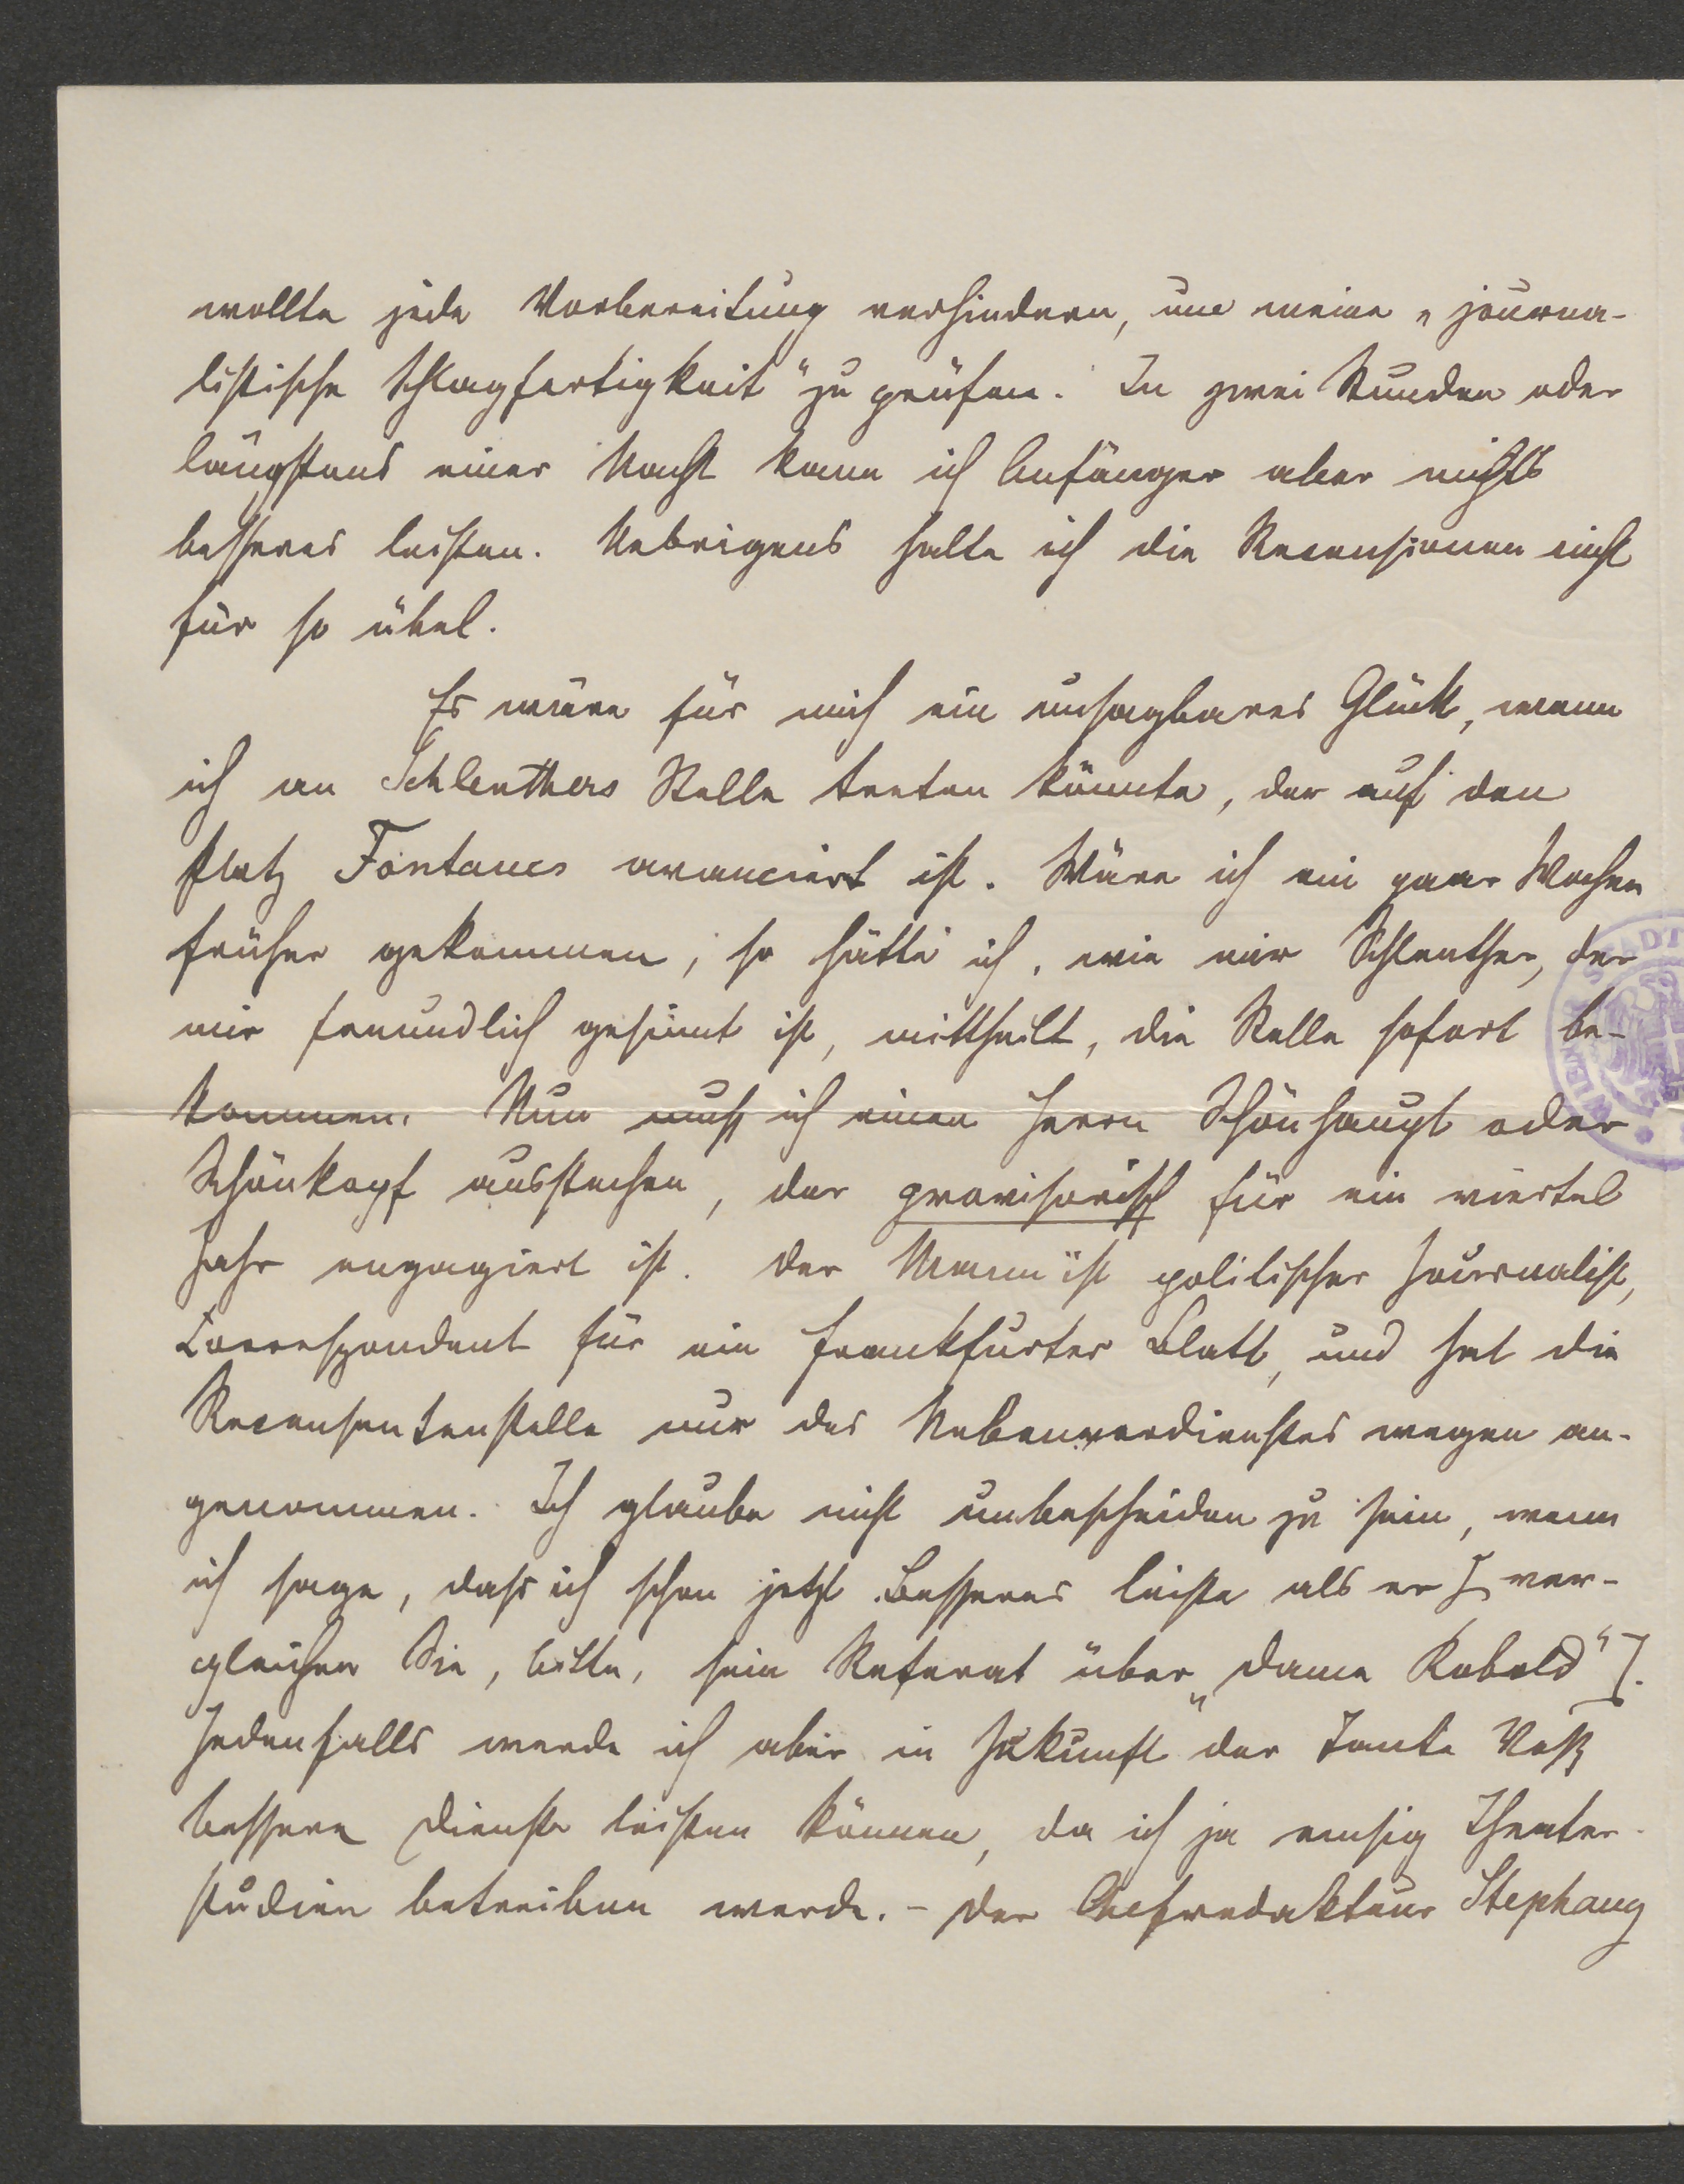 wollte jede Vorbereitung verhindern, um meine „journa-
listische Schlagfertigkeit“ zu prüfen. In zwei Stunden oder
längstens einer Nacht kann ich Anfänger aber nichts
besseres leisten. Uebrigens halte ich die Recensionen nicht
für so übel.
Es wäre für mich ein unsagbares Glück, wenn
ich an Schlenthers Stelle treten könnte, der auf den
Platz Fontanes avanciert ist. Wäre ich ein paar Wochen
früher gekommen, so hätte ich, wie mir Schlenther, der
mir freundlich gesinnt ist, mittheilt, die Stelle sofort be-
kommen. Nun muß ich einen Herrn Schönhaupt oder
Schönkopf ausstechen, der provisorisch für ein viertel
Jahr engagiert ist. Der Mann ist politischer Journalist,
Correspondent für ein Frankfurter Blatt, und hat die
Recensentenstelle nur des Nebenverdienstes wegen an-
genommen. Ich glaube nicht unbescheiden zu sein, wenn
ich sage, dass ich schon jetzt Besseres leiste als er [ver-
gleichen Sie, bitte, sein Referat über „Dame Kobold“].
Jedenfalls werde ich aber in Zukunft der Tante Voß
bessere Dienste leisten können, da ich ja emsig Theater-
studien betreiben werde. – Der Chefredakteur Stephany
STADT
WIEN